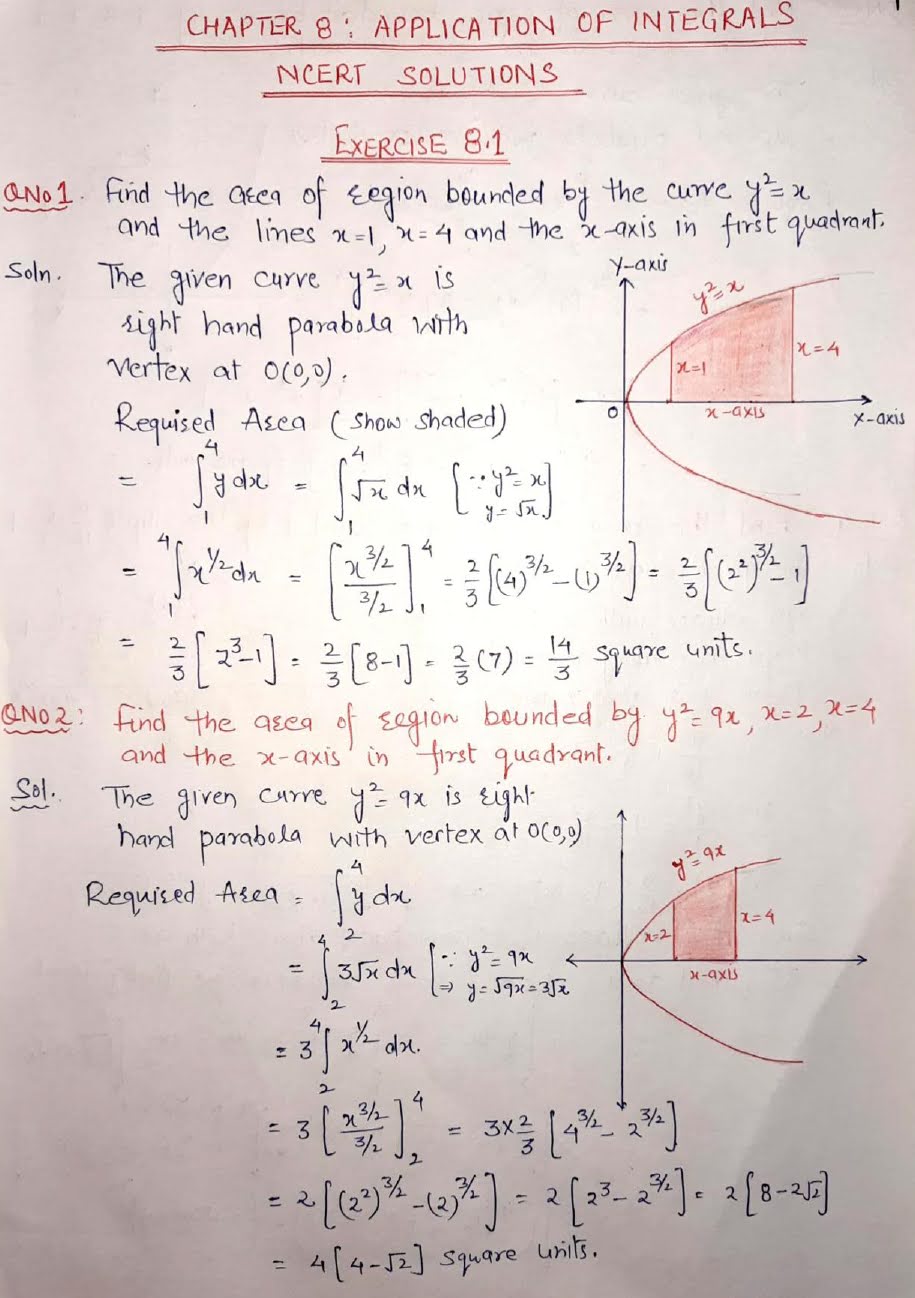 CHAPTER 8 : APPLICATION OF INTEGRALS
NCERT SOLUTIONS
EXERCISE 8.1
QNo 1. Find the area of region bounded by the curve y²=x
and the lines x=1, x=4 and the x-axis in first quadrant.
Soln. The given curve y²=x is
right hand parabola with
vertex at O(0,0).
Y-axis
y²=x
x=1
x=4
O
x-axis
X-axis
Required Area (show shaded)
= ∫₁⁴ y dx = ∫₁⁴ √x dx [∵ y²=x y=√x]
= ∫₁⁴ x^1/2 dx = [x^3/2 / 3/2]₁⁴ = 2/3 [(4)^3/2 - (1)^3/2] = 2/3 [(2²)^3/2 - 1]
= 2/3 [2³-1] = 2/3 [8-1] = 2/3 (7) = 14/3 square units.
QNO 2: Find the area of region bounded by y²=9x, x=2, x=4
and the x-axis in first quadrant.
Sol. The given curve y²=9x is right
hand parabola with vertex at O(0,0)
y²=9x
x=2
x=4
x-axis
Required Area = ∫₂⁴ y dx
= ∫₂⁴ 3√x dx [∵ y²=9x ⇒ y=√9x=3√x
= 3 ∫₂⁴ x^1/2 dx.
= 3 [x^3/2 / 3/2]₂⁴ = 3×2/3 [4^3/2 - 2^3/2]
= 2[(2²)^3/2 - (2)^3/2] = 2[2³ - 2^3/2] = 2[8-2√2]
= 4[4-√2] square units.